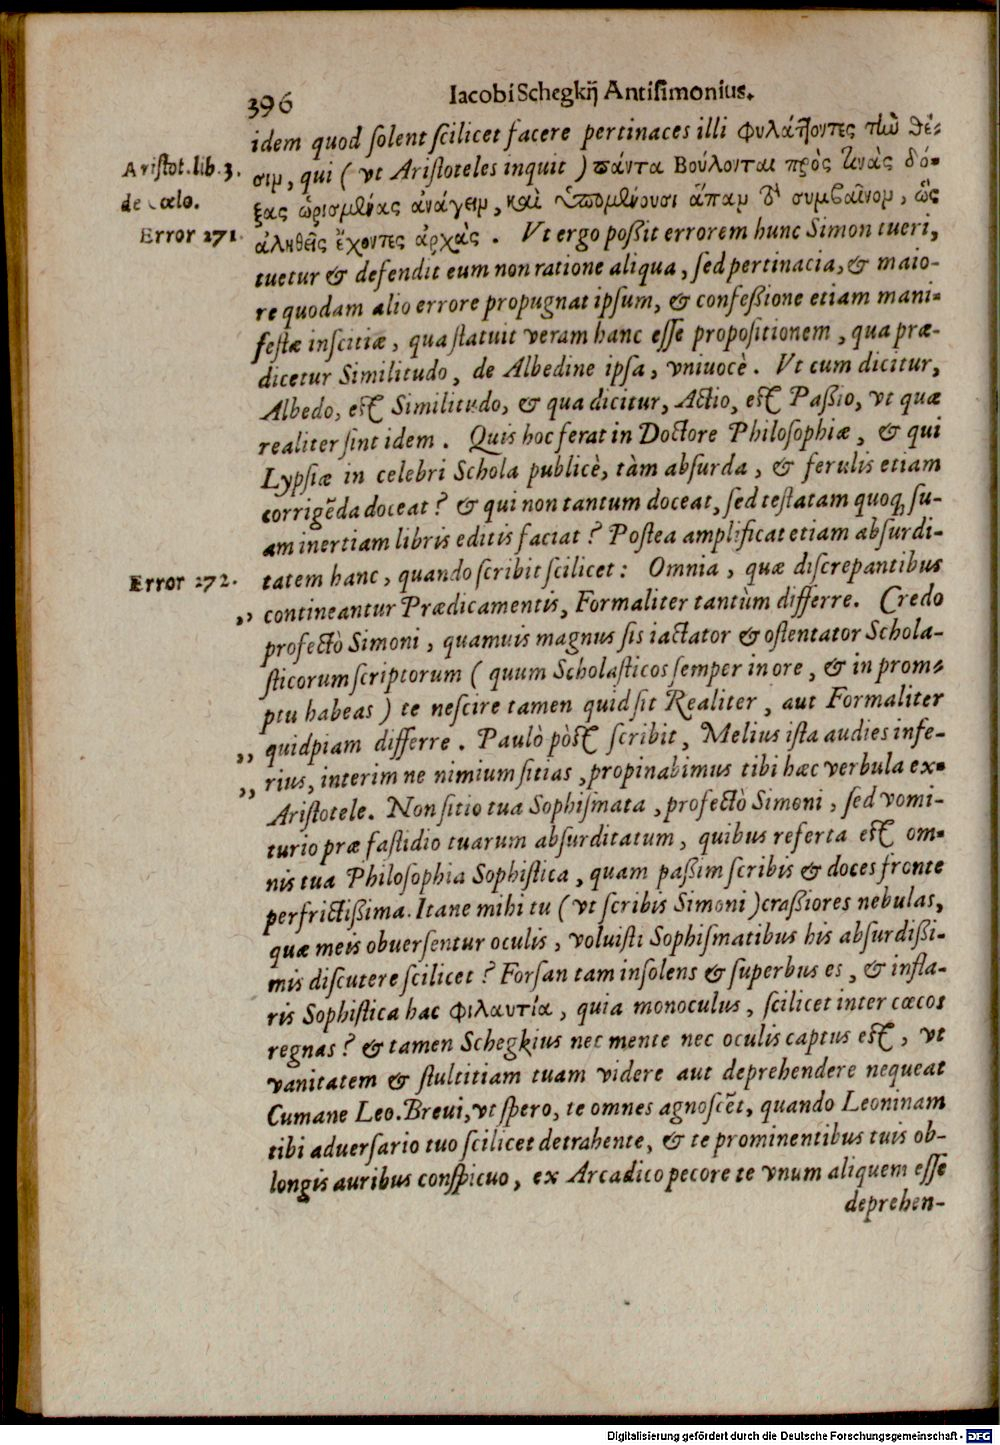 396 Iacobi Schegkij Antisimonius.
idem quod solent scilicet facere pertinaces illi φυλάττοντες τὴν θέ-
Aristot. lib. 3. σιν, qui (vt Aristoteles inquit) πάντα Βούλονται πρὸς τινὰς δό-
de Cœlo. ξας ὡρισμένας ἀνάγειν, καὶ ὑπομένουσι ἅπαν τὸ συμβαῖνον, ὡς
Error 271. ἀληθεῖς ἔχοντες ἀρχὰς. Vt ergo poßit errorem hunc Simon tueri,
tuetur & defendit eum non ratione aliqua, sed pertinacia, & maio-
re quodam alio errore propugnat ipsum, & confeßione etiam mani-
festæ inscitiæ, qua statuit veram hanc esse propositionem, qua præ-
dicetur Similitudo, de Albedine ipsa, vniuocè. Vt cum dicitur,
Albedo, est Similitudo, & qua dicitur, Actio, est Paßio, vt quæ
realiter sint idem. Quis hoc ferat in Doctore Philosophiæ, & qui
Lypsiæ in celebri Schola publicè, tàm absurda, & ferulis etiam
corrigẽda doceat? & qui non tantum doceat, sed testatam quoq; su-
am inertiam libris editis faciat? Postea amplificat etiam absurdi-
Error 272. tatem hanc, quando scribit scilicet: Omnia, quæ discrepantibus
,, contineantur Prædicamentis, Formaliter tantùm differre. Credo
profectò Simoni, quamuis magnus sis iactator & ostentator Schola-
sticorum scriptorum (quum Scholasticos semper in ore, & in prom-
ptu habeas) te nescire tamen quid sit Realiter, aut Formaliter
,, quidpiam differre. Paulò pòst scribit, Melius ista audies infe-
,, rius, interim ne nimium sitias, propinabimus tibi hæc verbula ex
Aristotele. Non sitio tua Sophismata, profectò Simoni, sed vomi-
turio præ fastidio tuarum absurditatum, quibus referta est om-
nis tua Philosophia Sophistica, quam paßim scribis & doces fronte
perfrictißima. Itane mihi tu (vt scribis Simoni) craßiores nebulas,
quæ meis obuersentur oculis, voluisti Sophismatibus his absurdißi-
mis discutere scilicet? Forsan tam insolens & superbus es, & infla-
ris Sophistica hac φιλαυτία, quia monoculus, scilicet inter cæcos
regnas? & tamen Schegkius nec mente nec oculis captus est, vt
vanitatem & stultitiam tuam videre aut deprehendere nequeat
Cumane Leo. Breui, vt spero, te omnes agnoscẽt, quando Leoninam
tibi aduersario tuo scilicet detrahente, & te prominentibus tuis ob-
longis auribus conspicuo, ex Arcadico pecore te vnum aliquem esse
deprehen-
Digitalisierung gefördert durch die Deutsche Forschungsgemeinschaft - DFG